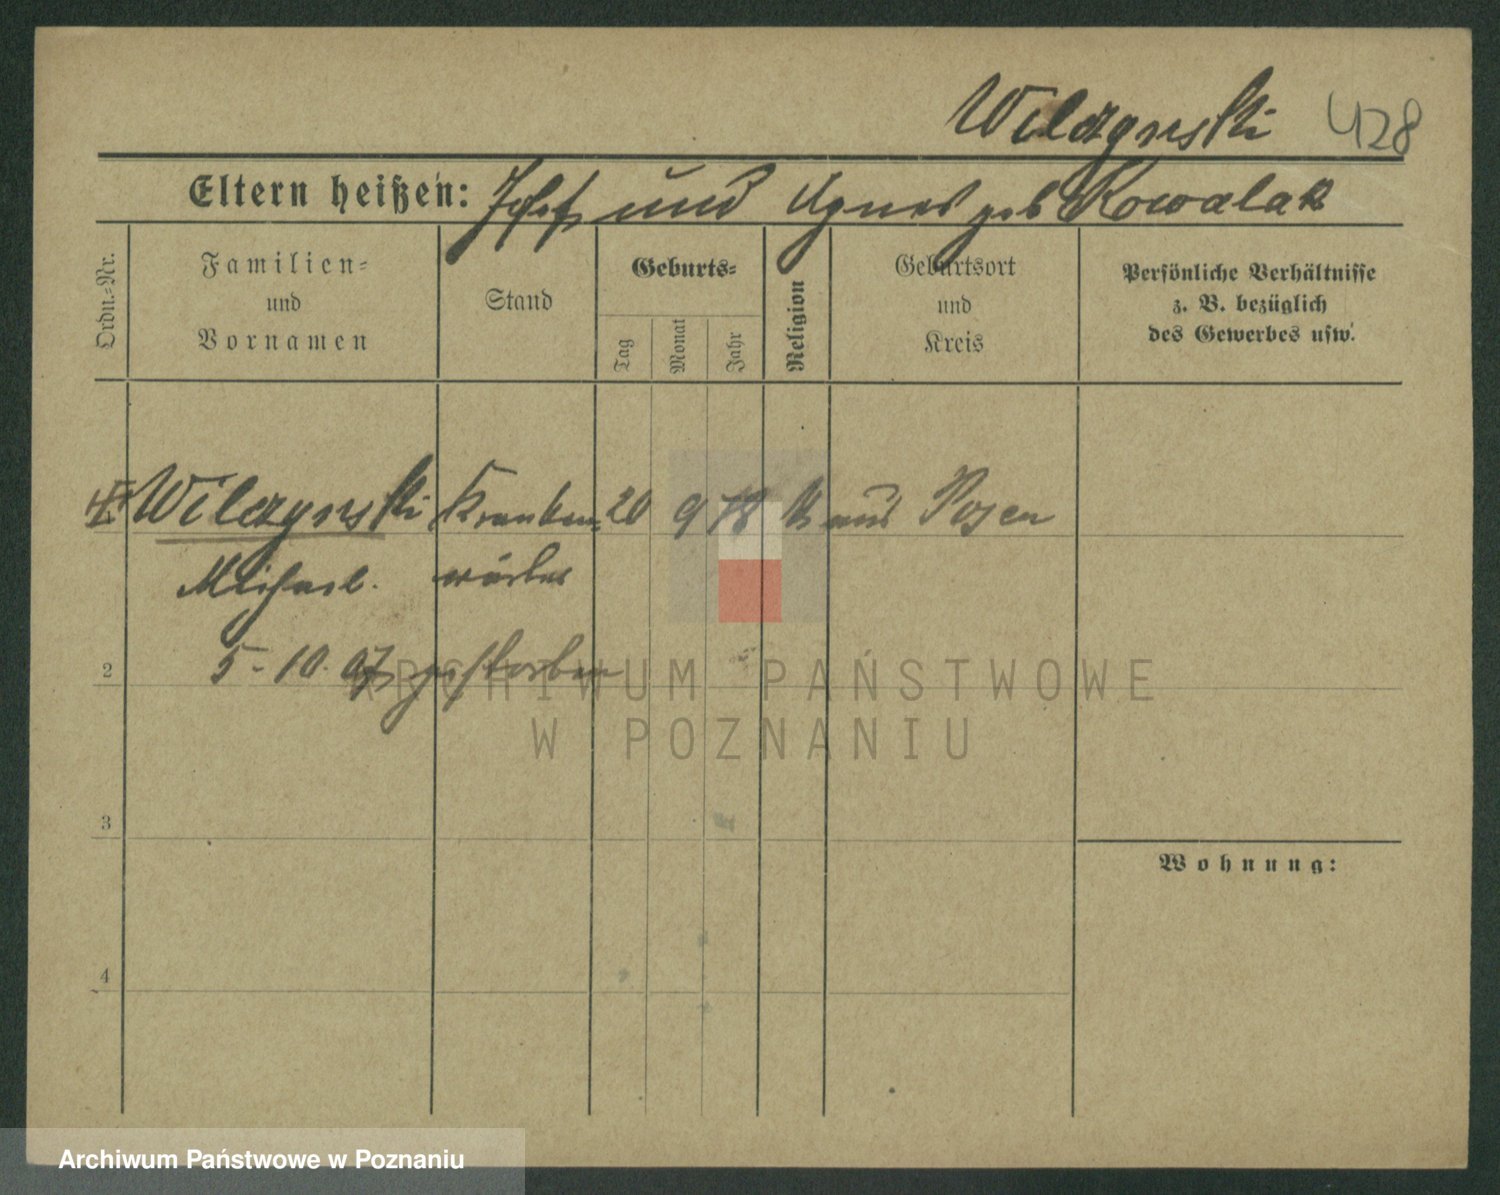 Wilczynski 428
Eltern heißen: Josef und Agnes geb Kowalak
Ordn.-Nr.
Familien-
und
Vornamen
Stand
Geburts-
Tag
Monat
Jahr
Religion
Geburtsort
und
Kreis
Persönliche Verhältnisse
z. B. bezüglich
des Gewerbes usw.
Wilczynski Kranken- 20 9 78 k aus Posen
Michael. wärter
2 5-10.07 gestorben
3
4
Wohnung:
ARCHIWUM PAŃSTWOWE
W POZNANIU
Archiwum Państwowe w Poznaniu